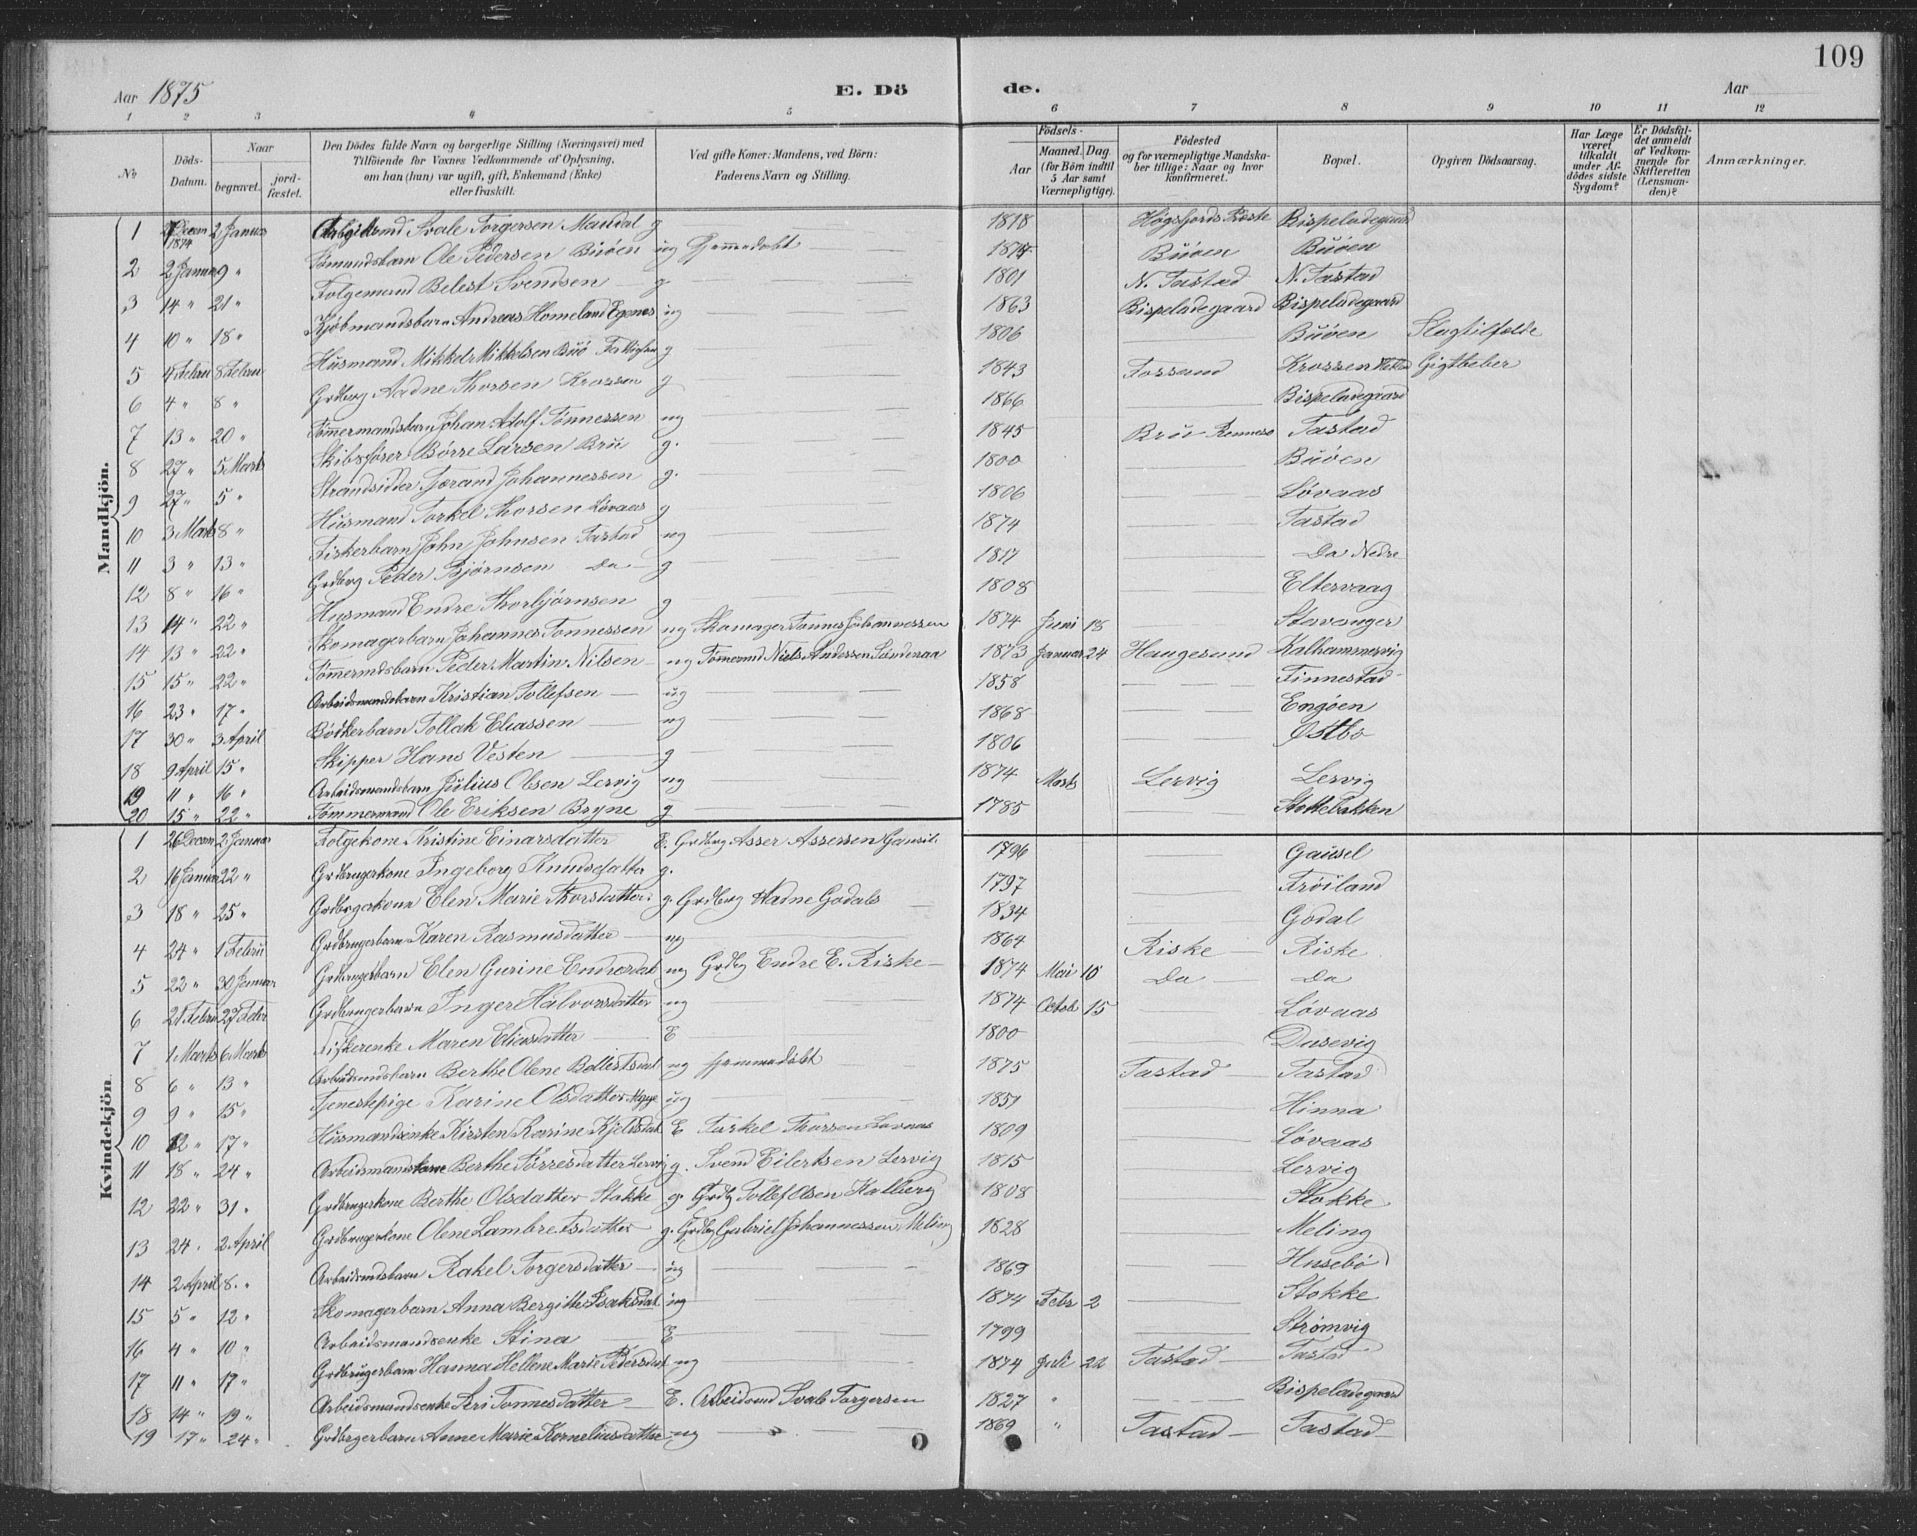 109
Aar 1875 E. Dö de. Aar
1 2 3 4 5 6 7 8 9 10 11 12
No
Döds-Datum.
Naar begravet. jordfæstet.
Den Dödes fulde Navn og borgerlige Stilling (Næringsvei) med Tilföiende for Voxnes Vedkommende af Oplysning, om han (hun) var ugift, gift, Enkemand (Enke) eller fraskilt.
Ved gifte Koner: Mandens, ved Börn: Faderens Navn og Stilling.
Födsels- Aar Maaned. Dag. (for Börn indtil 5 Aar samt Værnepligtige).
Födested og for værnepligtige Mandskaber tillige: Naar og hvor konfirmeret.
Bopæl.
Opgiven Dödsaarsag.
Har Læge været tilkaldt under Afdödes sidste Sygdom?
Er Dödsfaldet anmeldt af Vedkommende for Skifteretten (Lensmanden)?
Anmærkninger.
Mandkjön.
1 Decem 1874 2 Januar Svale Torgersen Mandal g 1818 Høgsfjords Bispeladegaard
2 2 Januar 9 " Sømandsbarn Ole Pedersen Buøen ug Hjemmedøbt Buøen Buøen
3 14 " 21 " Folgemand Belest Svendsen g 1801 N. Tastad N. Tastad
4 10 " 18 " Kjøbmandsbarn Andreas Homeland Egenes ug 1863 Bispeladegaard Bispeladegaard
5 4 Febru 8 Febru Husmand Mikkel Mikkelsen Buø g 1806 Buøen Slagtilfælde
6 4 " 8 " Grdbrg Aadne Thorsen Krossen g 1843 Fossand Krossen Gigtfeber
7 13 " 20 " Tømmermandsbarn Johan Adolf Tønnessen ug 1866 Bispeladegaard
8 27 " 5 Marts Skibsfører Børre Larsen Bru g. 1845 Bru Rennesø Tastad
9 27 " 5 " Strandsidder Tjærand Johannessen g. 1800 Buøen
10 3 Marts 8 " Husmand Torkel Thorsen Løvaas g 1806 Løvaas
11 3 " 13 " Fiskerbarn John Johnsen Tastad ug 1874 Tastad
12 8 " 16 " Grdbrg Peder Bjørnsen Do g 1817 Do Nedre
13 14 " 22 " Husmand Endre Thorbjørnsen g 1808 Eltervaag
14 13 " 22 " Skomagerbarn Johannes Tonnessen ug Skomager Tonnes Johannessen 1874 Juni 18 Stavanger
15 15 " 22 " Tømermdsbarn Peder Martin Nilsen ug Tømermd Niels Andersen Søndenaa 1873 Januar 24 Haugesund Kalhammervig
16 23 " 17 " Arbeidsmandsbarn Kristian Tollefsen ug 1858 Finnestad
17 30 " 3 April Bødkerbarn Tollak Eliassen ug 1868 Engøen
18 9 April 15 " Skipper Hans Vesten g 1806 Østbo
19 11 " 16 " Arbeidsmandsbarn Julius Olsen Lervig ug 1874 Marts Lervig Lervig
20 15 " 22 " Tømmermand Ole Eriksen Bryne g 1785 Støttebakken
Kvindekjön.
1 26 Decem 2 Januar Folgekone Kristine Einarsdatter E. Grdbrg Asser Assersen Gausel 1796 Gausel
2 16 Januar 22 " Grdbrugerkone Ingeborg Knudsdatter g. 1797 Frøiland
3 18 " 25 " Grdbrgerkone Elen Marie Thorsdatter g. Grdbrg Aadne Godals 1834 Godal
4 24 " 1 Febru Grdbrugerbarn Karen Rasmusdatter ug 1864 Riske Riske
5 22 " 30 Januar Grdbrugerbarn Elen Gurine Endresdat ug Grdbg Endre E. Riske 1874 Mai 10 Do Do
6 21 Febru 27 Febr Grdbrugerbarn Inger Halvorsdatter ug 1874 Octob 15 Løvaas
7 1 Marts 6 Marts Fiskerenke Maren Eliasdatter E 1800 Dusevig
8 6 " 13 " Arbeidsmdsbarn Berthe Olene Bollestsdat ug Hjemmedøbt 1875 Tastad Tastad
9 9 " 15 " Tjenestepige Karine Olsdatter ug 1851 Hinna
10 12 " 17 " Husmandsenke Kirsten Karine Kjeldsdat E Torkel Thorsen Løvaas 1809 Løvaas
11 18 " 24 " Arbeidsmandskone Berthe Tørresdatter Lervig g. Svend Eilertsen Lervig 1815 Lervig
12 22 " 31 " Grdbrugerkone Berthe Olsdatter Stokke g. Grdbg Tollef Olsen Kolberg 1808 Stokke
13 24 " 2 April Grdbrugerkone Olene Lambretsdatter g. Grdbg Gabriel Johannessen Meling 1828 Meling
14 2 April 8 " Arbeidsmdsbarn Rakel Torgersdatter ug 1869 Husebø
15 5 " 12 " Skomagerbarn Anna Bergitte Isaksdat ug 1874 Febr 2 Stokke
16 4 " 10 " Arbeidsmandsenke Stina E 1799 Strømvig
17 11 " 17 " Grdbrugerbarn Hanna Hellene Marie Pedersdat ug 1874 Juli 22 Tastad Tastad
18 14 " 19 " Arbeidsmandsenke Seri Tonnesdatter E. Arbeidsmd Svale Torgersen 1827 " Bispeladegaard
19 17 " 24 " Grdbrgerbarn Anne Marie Korneliusdatter ug 1869 " Tastad Tastad